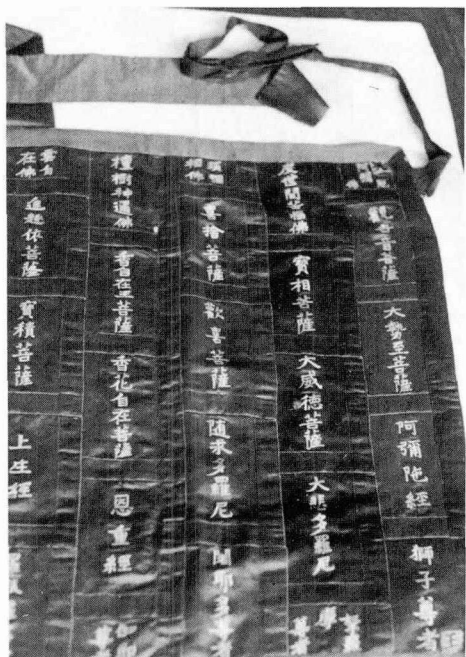 觀世音菩薩
大勢至菩薩
阿彌陀經
獅子尊者
度世間苦惱佛
寶相菩薩
大威德菩薩
大悲多羅尼
尊者
喜捨菩薩
歡喜菩薩
隨求多羅尼
闍耶多尊者
檀樹神通佛
香自在王菩薩
香花自在菩薩
恩重經
雲自在佛
寶積菩薩
上生經